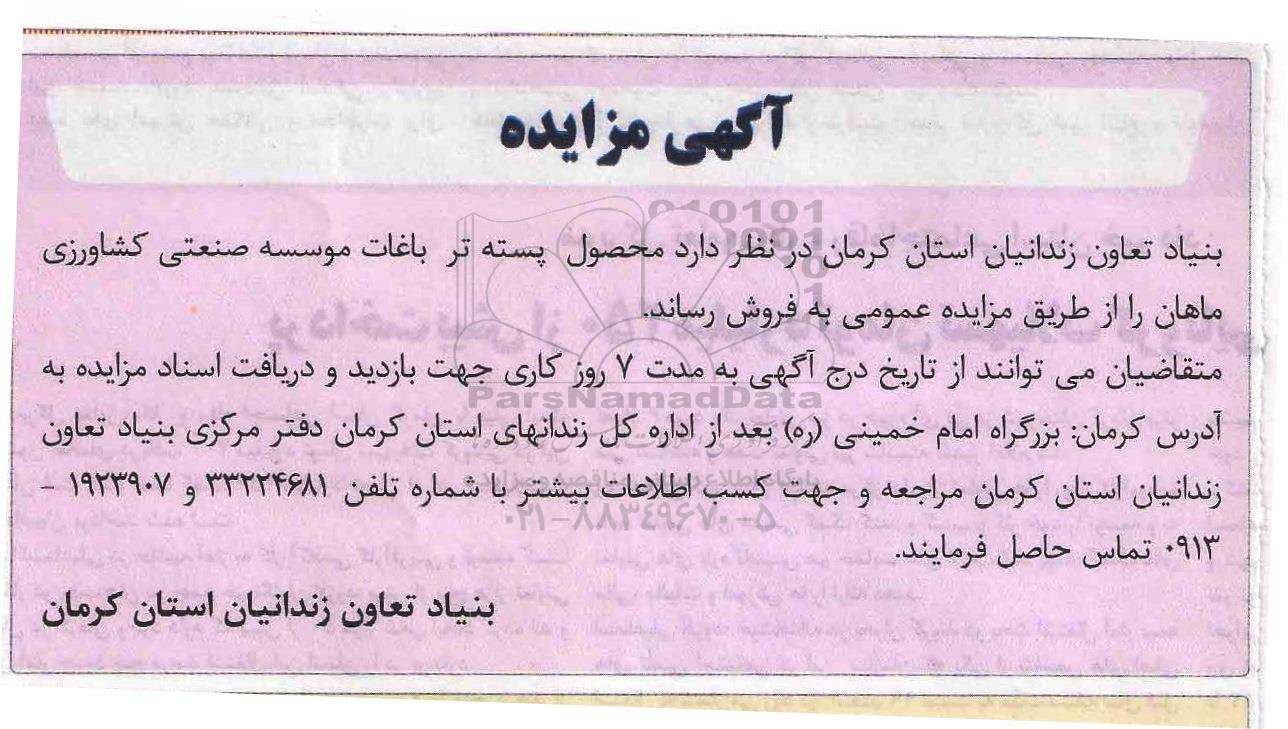 آگهی مزایده
بنیاد تعاون زندانیان استان کرمان در نظر دارد محصول پسته تر باغات موسسه صنعتی کشاورزی
ماهان را از طریق مزایده عمومی به فروش رساند.
متقاضیان می توانند از تاریخ درج آگهی به مدت ۷ روز کاری جهت بازدید و دریافت اسناد مزایده به
آدرس کرمان: بزرگراه امام خمینی (ره) بعد از اداره کل زندانهای استان کرمان دفتر مرکزی بنیاد تعاون
زندانیان استان کرمان مراجعه و جهت کسب اطلاعات بیشتر با شماره تلفن ۳۳۲۲۴۶۸۱ و ۱۹۲۳۹۰۷ –
۰۹۱۳ تماس حاصل فرمایند.
بنیاد تعاون زندانیان استان کرمان
ParsNamadData
۰۲۱–۸۸۳۴۹۶۷۰–۵